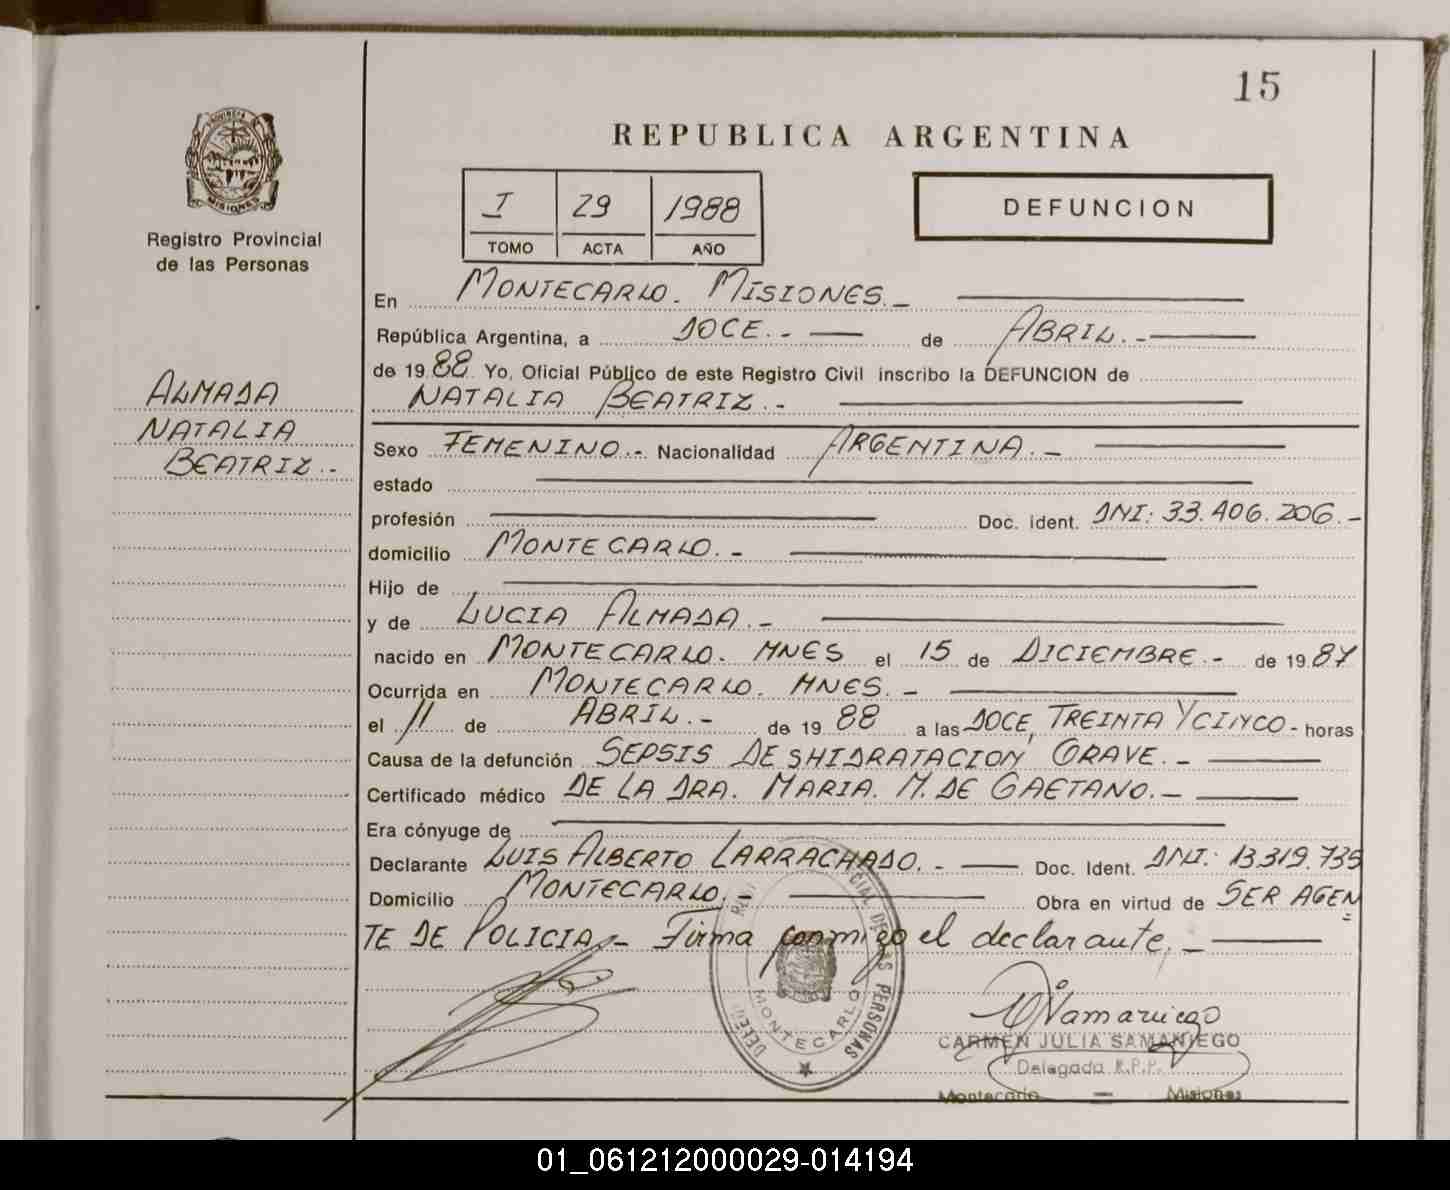 15
REPUBLICA ARGENTINA
PROVINCIA DE
MISIONES
Registro Provincial
de las Personas
I 29 1988
TOMO ACTA AÑO
DEFUNCION
En MONTECARLO. MISIONES.-
República Argentina, a DOCE.- de ABRIL.-
de 1988 Yo, Oficial Público de este Registro Civil inscribo la DEFUNCION de
NATALIA BEATRIZ.-
ALMADA
NATALIA
BEATRIZ.-
Sexo FEMENINO.- Nacionalidad ARGENTINA.-
estado
profesión Doc. ident. DNI: 33.406.206.-
domicilio MONTECARLO.-
Hijo de
y de LUCIA ALMADA.-
nacido en MONTECARLO. MNES el 15 de DICIEMBRE.- de 1987
Ocurrida en MONTECARLO. MNES.-
el 11 de ABRIL.- de 1988 a las DOCE, TREINTA Y CINCO- horas
Causa de la defunción SEPSIS DESHIDRATACION GRAVE.-
Certificado médico DE LA DRA. MARIA. M. DE GAETANO.-
Era cónyuge de
Declarante LUIS ALBERTO LARRACHADO.- Doc. Ident. DNI: 13.319.735
Domicilio MONTECARLO.- Obra en virtud de SER AGEN=
TE DE POLICIA.- Firma conmigo el declarante.-
PERSONAS
MONTECARLO
CARMEN JULIA SAMANIEGO
Delegada R.P.P.
Montecarlo - Misiones
01_061212000029-014194